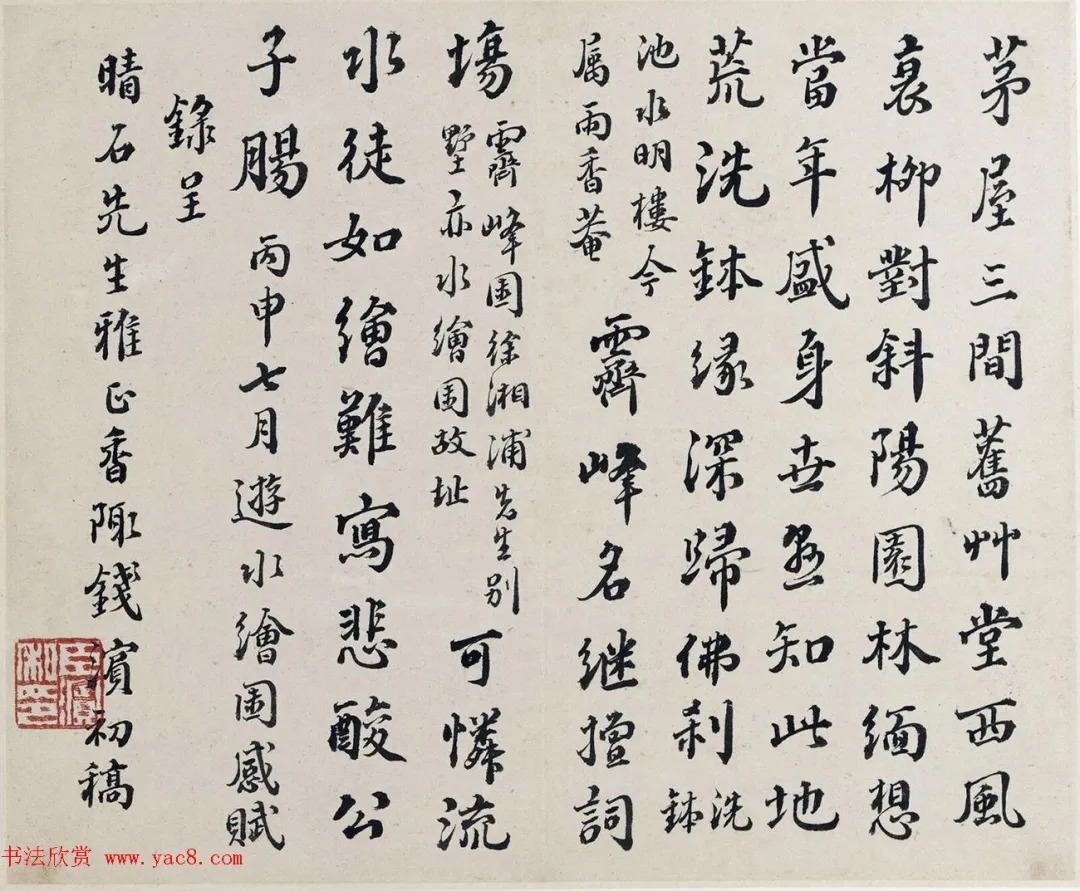 茅屋三間舊艸堂西風
衰柳對斜陽園林緬想
當年盛身世知此地
荒洗鉢緣深歸佛刹洗鉢
池水明樓今
屬雨香菴
霽峰名継擅詞
場
霽峰園徐湘浦先生別
墅亦水繪園故址
可憐流
水徒如繪難寫悲酸公
子腸丙申七月遊水繪園感賦
錄呈
晴石先生雅正香陬錢濱初稿
书法欣赏 www.yac8.com